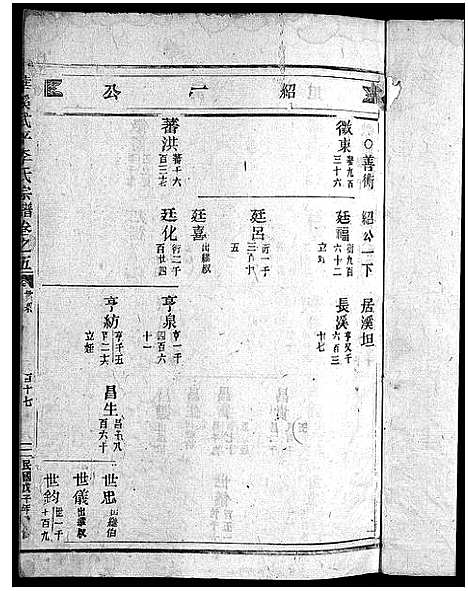 紹一公
○善衛 紹公一下 居溪坦
徵東 蕃九百三十六
廷福 衍九百六十二 立姪
長溪 亨又千六百三十七
廷呂 衍一千三百十五
廷喜 出繼叔
蕃洪 蕃千六百三七
廷化 衍二千百廿四
亨泉 亨一千四百六十一
亨紡 亨千五百二六 立姪
昌生 昌千八百六十
世忠 出繼伯
世儀 出繼叔
世鈞 世一千十百九
李氏宗譜卷之五
百十七
民國戊子年